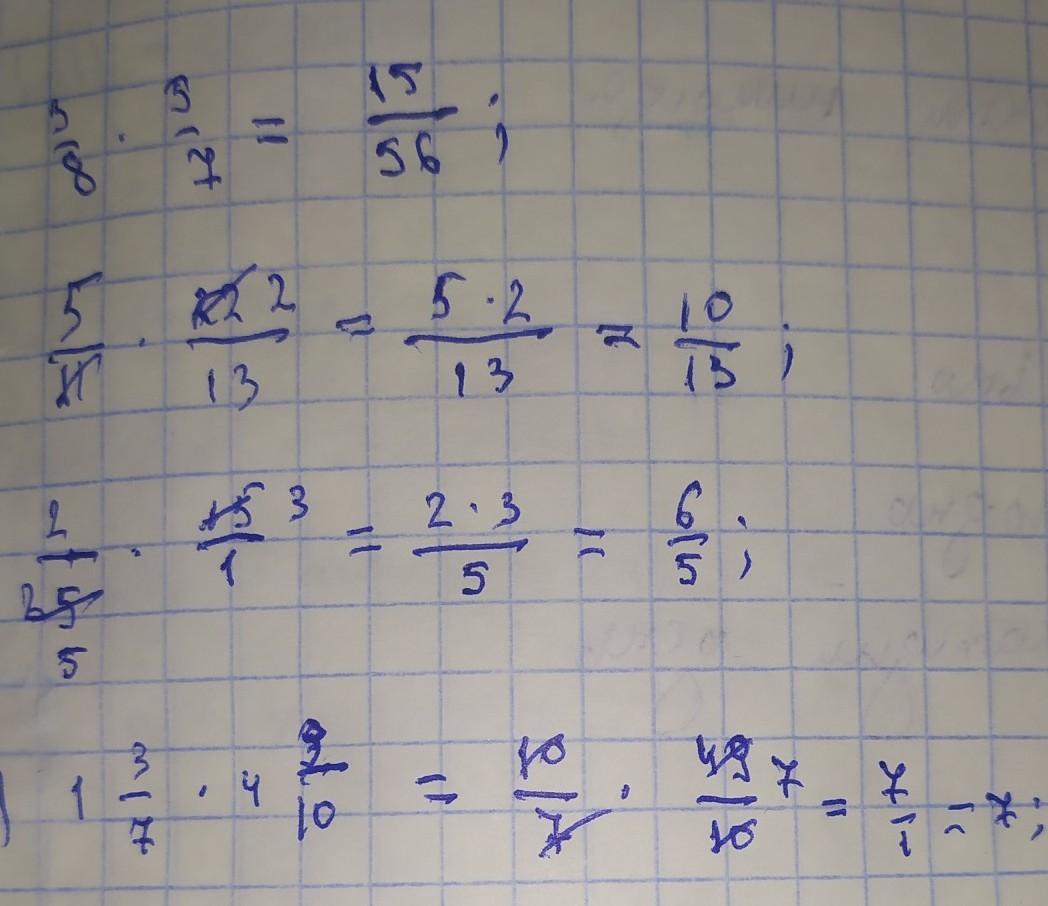 5/8 · 3/7 = 15/56 ;
5/11 · 22 2/13 = 5 · 2/13 = 10/13 ;
2/25 5 · 15 3/1 = 2 · 3/5 = 6/5 ;
) 1 3/7 · 4 9/10 = 10/7 · 49 7/10 = 7/1 = 7 ;